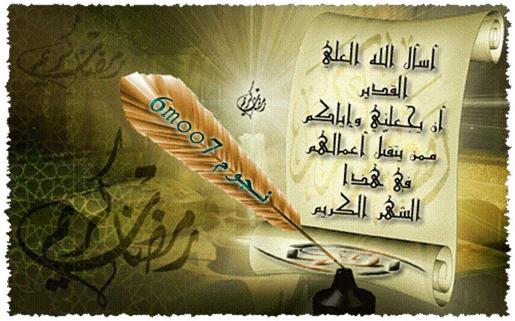 أسأل الله العلي
القدير
أن يجعلني وإياكم
ممن يتقبل أعمالهم
في هذا
الشهر الكريم
نجوم 6moo7
رمضان كريم
رمضان كريم